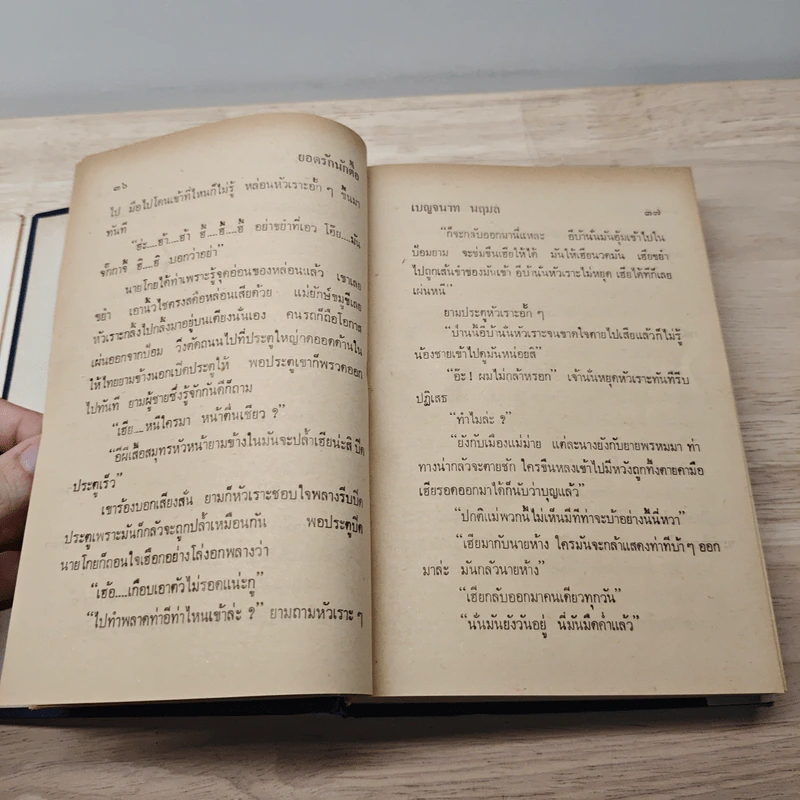 ๓๖ ยอดรักนักตื๊อ
ไป มือไปโดนเข้าที่ไหนก็ไม่รู้ หล่อนหัวเราะฮั้ก ๆ ขึ้นมา
ทันที
“ฮ่ะ....ฮ้า....ฮ้า ฮี้....ฮี้....ฮี้ อย่าขยำที่เอว โอ๊ย....มัน
จั๊กกาจี้ ฮิ....ฮิ บอกว่าอย่า”
นายโกยได้ท่าเพราะรู้จุดอ่อนของหล่อนแล้ว เขาเลย
ขยำ เอานิ้วไชตรงสดือหล่อนเสียด้วย แม่ยักษ์ขมูขีเลย
หัวเราะกลิ้งไปกลิ้งมาอยู่บนเตียงนั่นเอง คนรถก็ถือโอกาส
เผ่นออกจากป้อม วิ่งตัดถนนไปที่ประตูใหญ่าดออดด้านใน
ให้ไทยยามข้างนอกเปิดประตูให้ พอประตูเขาก็พรวดออก
ไปทันที ยามผู้ชายซึ่งรู้จักกันดีก็ถาม
“เฮีย....หนีใครมา หน้าตื่นเชียว ?”
“อีผีเสื้อสมุทรหัวหน้ายามข้างในมันจะปล้ำเฮียน่ะสิ ปิด
ประตูเร็ว”
เขาร้องบอกเสียงสั่น ยามก็หัวเราะชอบใจพลางรีบปิด
ประตูเพราะมันก็กลัวจะถูกปล้ำเหมือนกัน พอประตูปิด
นายโกยก็ถอนใจเฮือกอย่างโล่งอกพลางว่า
“เฮ้อ....เกือบเอาตัวไม่รอดแน่ะกู”
“ไปทำพลาดท่าอีท่าไหนเข้าล่ะ ?” ยามถามหัวเราะ ๆ
เบญจนาท นฤมล ๓๗
“ก็จะกลับออกมานี่แหละ อีบ้านั่นมันอุ้มเข้าไปใน
ป้อมยาม จะข่มขืนเฮียให้ได้ มันให้เฮียนวดมัน เฮียขยำ
ไปถูกเส้นขำของมันเข้า อีบ้านั่นหัวเราะไม่หยุด เฮียได้ทีก็เลย
เผ่นหนี”
ยามประตูหัวเราะฮั้ก ๆ
“ป่านนี้อีบ้านั่นหัวเราะจนขาดใจตายไปเสียแล้วก็ไม่รู้
น้องชายเข้าไปดูมันหน่อยสิ”
“อ๊ะ ! ผมไม่กล้าหรอก” เจ้านั่นหยุดหัวเราะทันทีรีบ
ปฏิเสธ
“ทำไมล่ะ ?”
“ยังกับเมืองแม่ม่าย แต่ละนางยังกับยายพรหมมา ท่า
ทางน่ากลัวจะตายชัก ใครขืนหลงเข้าไปมีหวังถูกทึ้งตายคามือ
เฮียรอดออกมาได้ก็นับว่าบุญแล้ว”
“ปกติแม่พวกนี้ไม่เห็นมีทีท่าจะบ้าอย่างนี้นี่หวา”
“เฮียมากับนายห้าง ใครมันจะกล้าแสดงท่าทีบ้า ๆ ออก
มาล่ะ มันกลัวนายห้าง”
“เฮียกลับออกมาคนเดียวทุกวัน”
“นั่นมันยังวันอยู่ นี่มันมืดค่ำแล้ว”